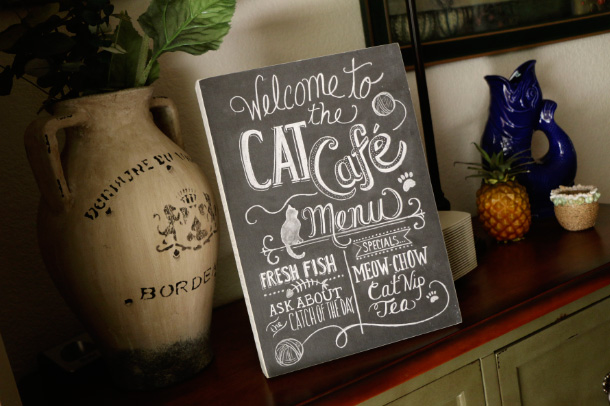 DOMAINE DU
BORDE
Welcome to
the
CAT Café
Menu
FRESH FISH
ASK ABOUT
the CATCH OF THE DAY
SPECIALS
MEOW-CHOW
Cat Nip
Tea